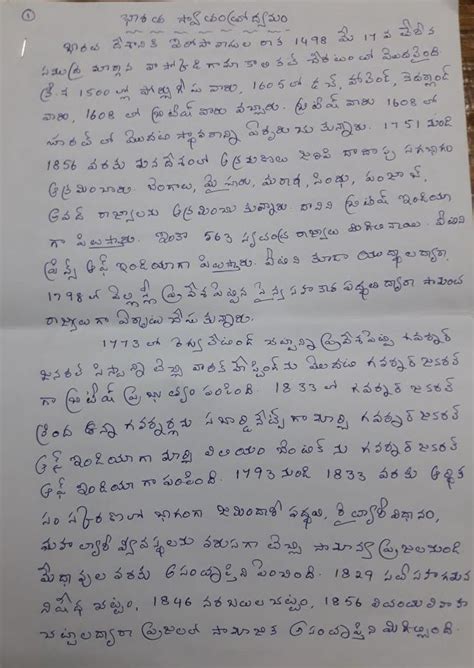 1
భారత స్వాతంత్ర్యోద్యమం
భారత దేశానికి ఐరోపావాసుల రాక 1498 మే 17 న
సముద్ర మార్గాన వాస్కోడిగామా కాలికట్ చేరటంలో మొదలైంది.
క్రీ.శ 1500 ల్లో పోర్చుగీసు వారు, 1605 లో డచ్, హాలెండ్, నెదర్లాండ్
వారు, 1608 లో బ్రిటిష్ వారు వచ్చారు. బ్రిటిష్ వారు 1608 లో
భారత్ లో మొదట స్థావరాన్ని ఏర్పరుచు కున్నారు. 1751 నుండి
1856 వరకు మనదేశంలో ఆక్రమణలు జరిపి రాజ్యాన్ని సగభాగం
ఆక్రమించారు. బెంగాలు, మైసూరు, మరాఠ, సింధు, పంజాబ్,
అవధ్ రాజ్యాలను ఆక్రమించు కున్నారు. దానిని బ్రిటిష్ ఇండియా
గా పిలుస్తారు. ఇంకా 563 స్వతంత్ర రాజ్యాలు మిగిలినాయి. వీటిని
ప్రిన్స్ ఆఫ్ ఇండియాగా పిలుస్తారు. వీటిని కూడా యుద్ధాలద్వారా,
1798 లో వెల్లస్లీ ప్రవేశపెట్టిన సైన్య సహకార పద్ధతి ద్వారా సామంత
రాజ్యాలు గా ఏర్పాటు చేసు కున్నారు.
1773 లో రెగ్యులేటింగ్ చట్టాన్ని ప్రవేశపెట్టి గవర్నర్
జనరల్ సిస్టాన్ని తెచ్చి వారన్ హేస్టింగ్ ను మొదట గవర్నర్ జనరల్
గా బ్రిటిష్ ప్రభుత్వం పంపింది. 1833 లో గవర్నర్ జనరల్
క్రింద ఉన్న గవర్నర్లను సబార్డినేట్స్ గా మార్చి గవర్నర్ జనరల్
ఆఫ్ ఇండియా గా మార్చి విలియం బెంటిక్ ను గవర్నర్ జనరల్
ఆఫ్ ఇండియా గా పంపింది. 1793 నుండి 1833 వరకు ఆర్థిక
సంస్కరణలో భాగంగా జమిందారీ పద్ధతి, రైత్వారీ విధానం,
మహల్వారీ వ్యవస్థలను వరుసగా తెచ్చి సామాన్య ప్రజలనుండి
మేధావుల వరకు అసంతృప్తిని పెంచింది. 1829 సతీసహగమన
నిషేధ చట్టం, 1846 నరబలుల చట్టం, 1856
చట్టాలద్వారా ప్రజలలో సామాజిక అసంతృప్తిని మిగిల్చింది.